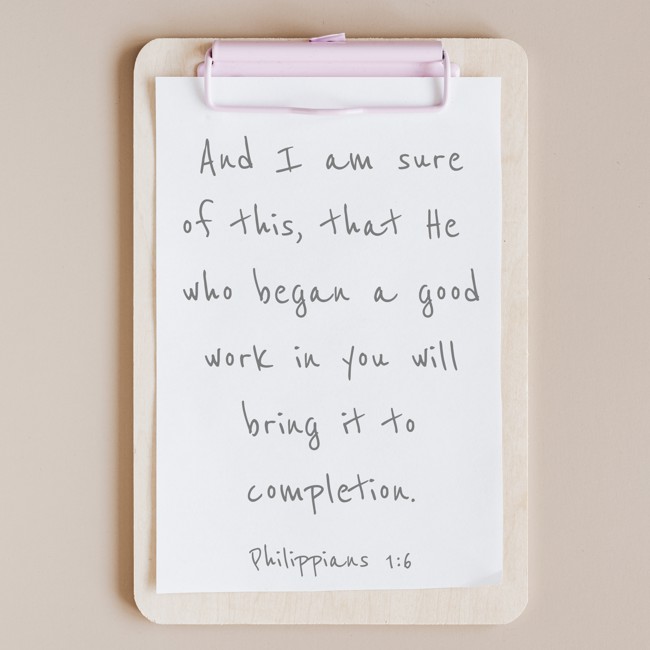 And I am sure
of this, that He
who began a good
work in you will
bring it to
completion.
Philippians 1:6